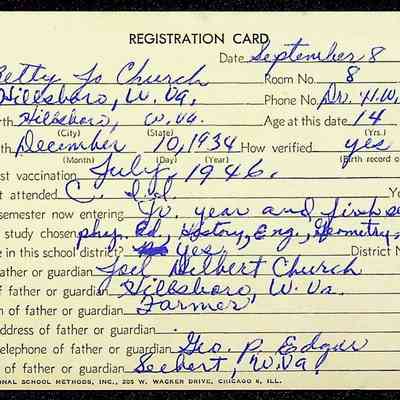 REGISTRATION CARD
Date September 8
Betty Jo Church Room No. 8
Hillsboro, W. Va. Phone No. Dr. H.W.
rth Hillsboro, W. Va. Age at this date 14
(City) (State) (Yrs.)
th December 10, 1934 How verified yes
(Month) (Day) (Year) (Birth record o
st vaccination July, 1946.
t attended
semester now entering Jr. year and first se
study chosen phy. Ed., History, Eng., Geometry,
e in this school district? yes District N
ather or guardian Joel Delbert Church
f father or guardian Hillsboro, W. Va.
n of father or guardian Farmer
ddress of father or guardian
elephone of father or guardian Geo. P. Edgar
of father or guardian Seebert, W. Va.
ONAL SCHOOL METHODS, INC., 205 W. WACKER DRIVE, CHICAGO 6, ILL.